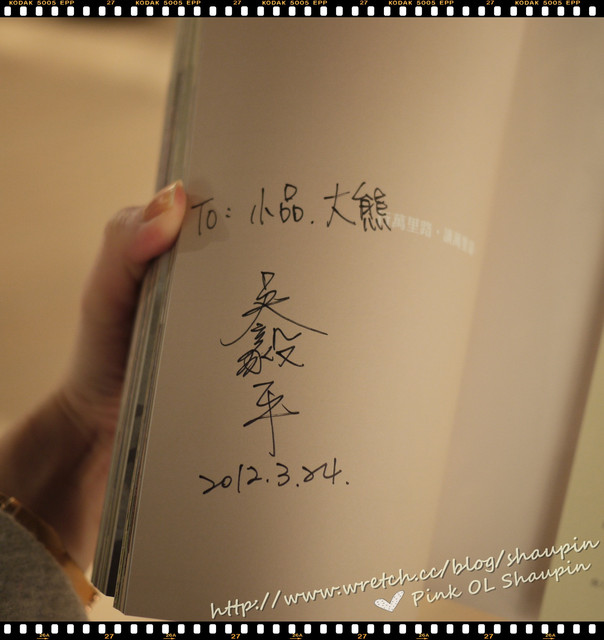 KODAK 5005 EPP 27 KODAK 5005 EPP 27 KODAK 5005 EPP 27 KODAK 5005 EPP 27 KODAK 5005 EPP
To: 小品. 大熊
萬里路，
吳毅平
2012.3.24.
http://www.wretch.cc/blog/shaupin
Pink OL Shaupin
26A 27 26A 27 26A 27 26A 27 26A